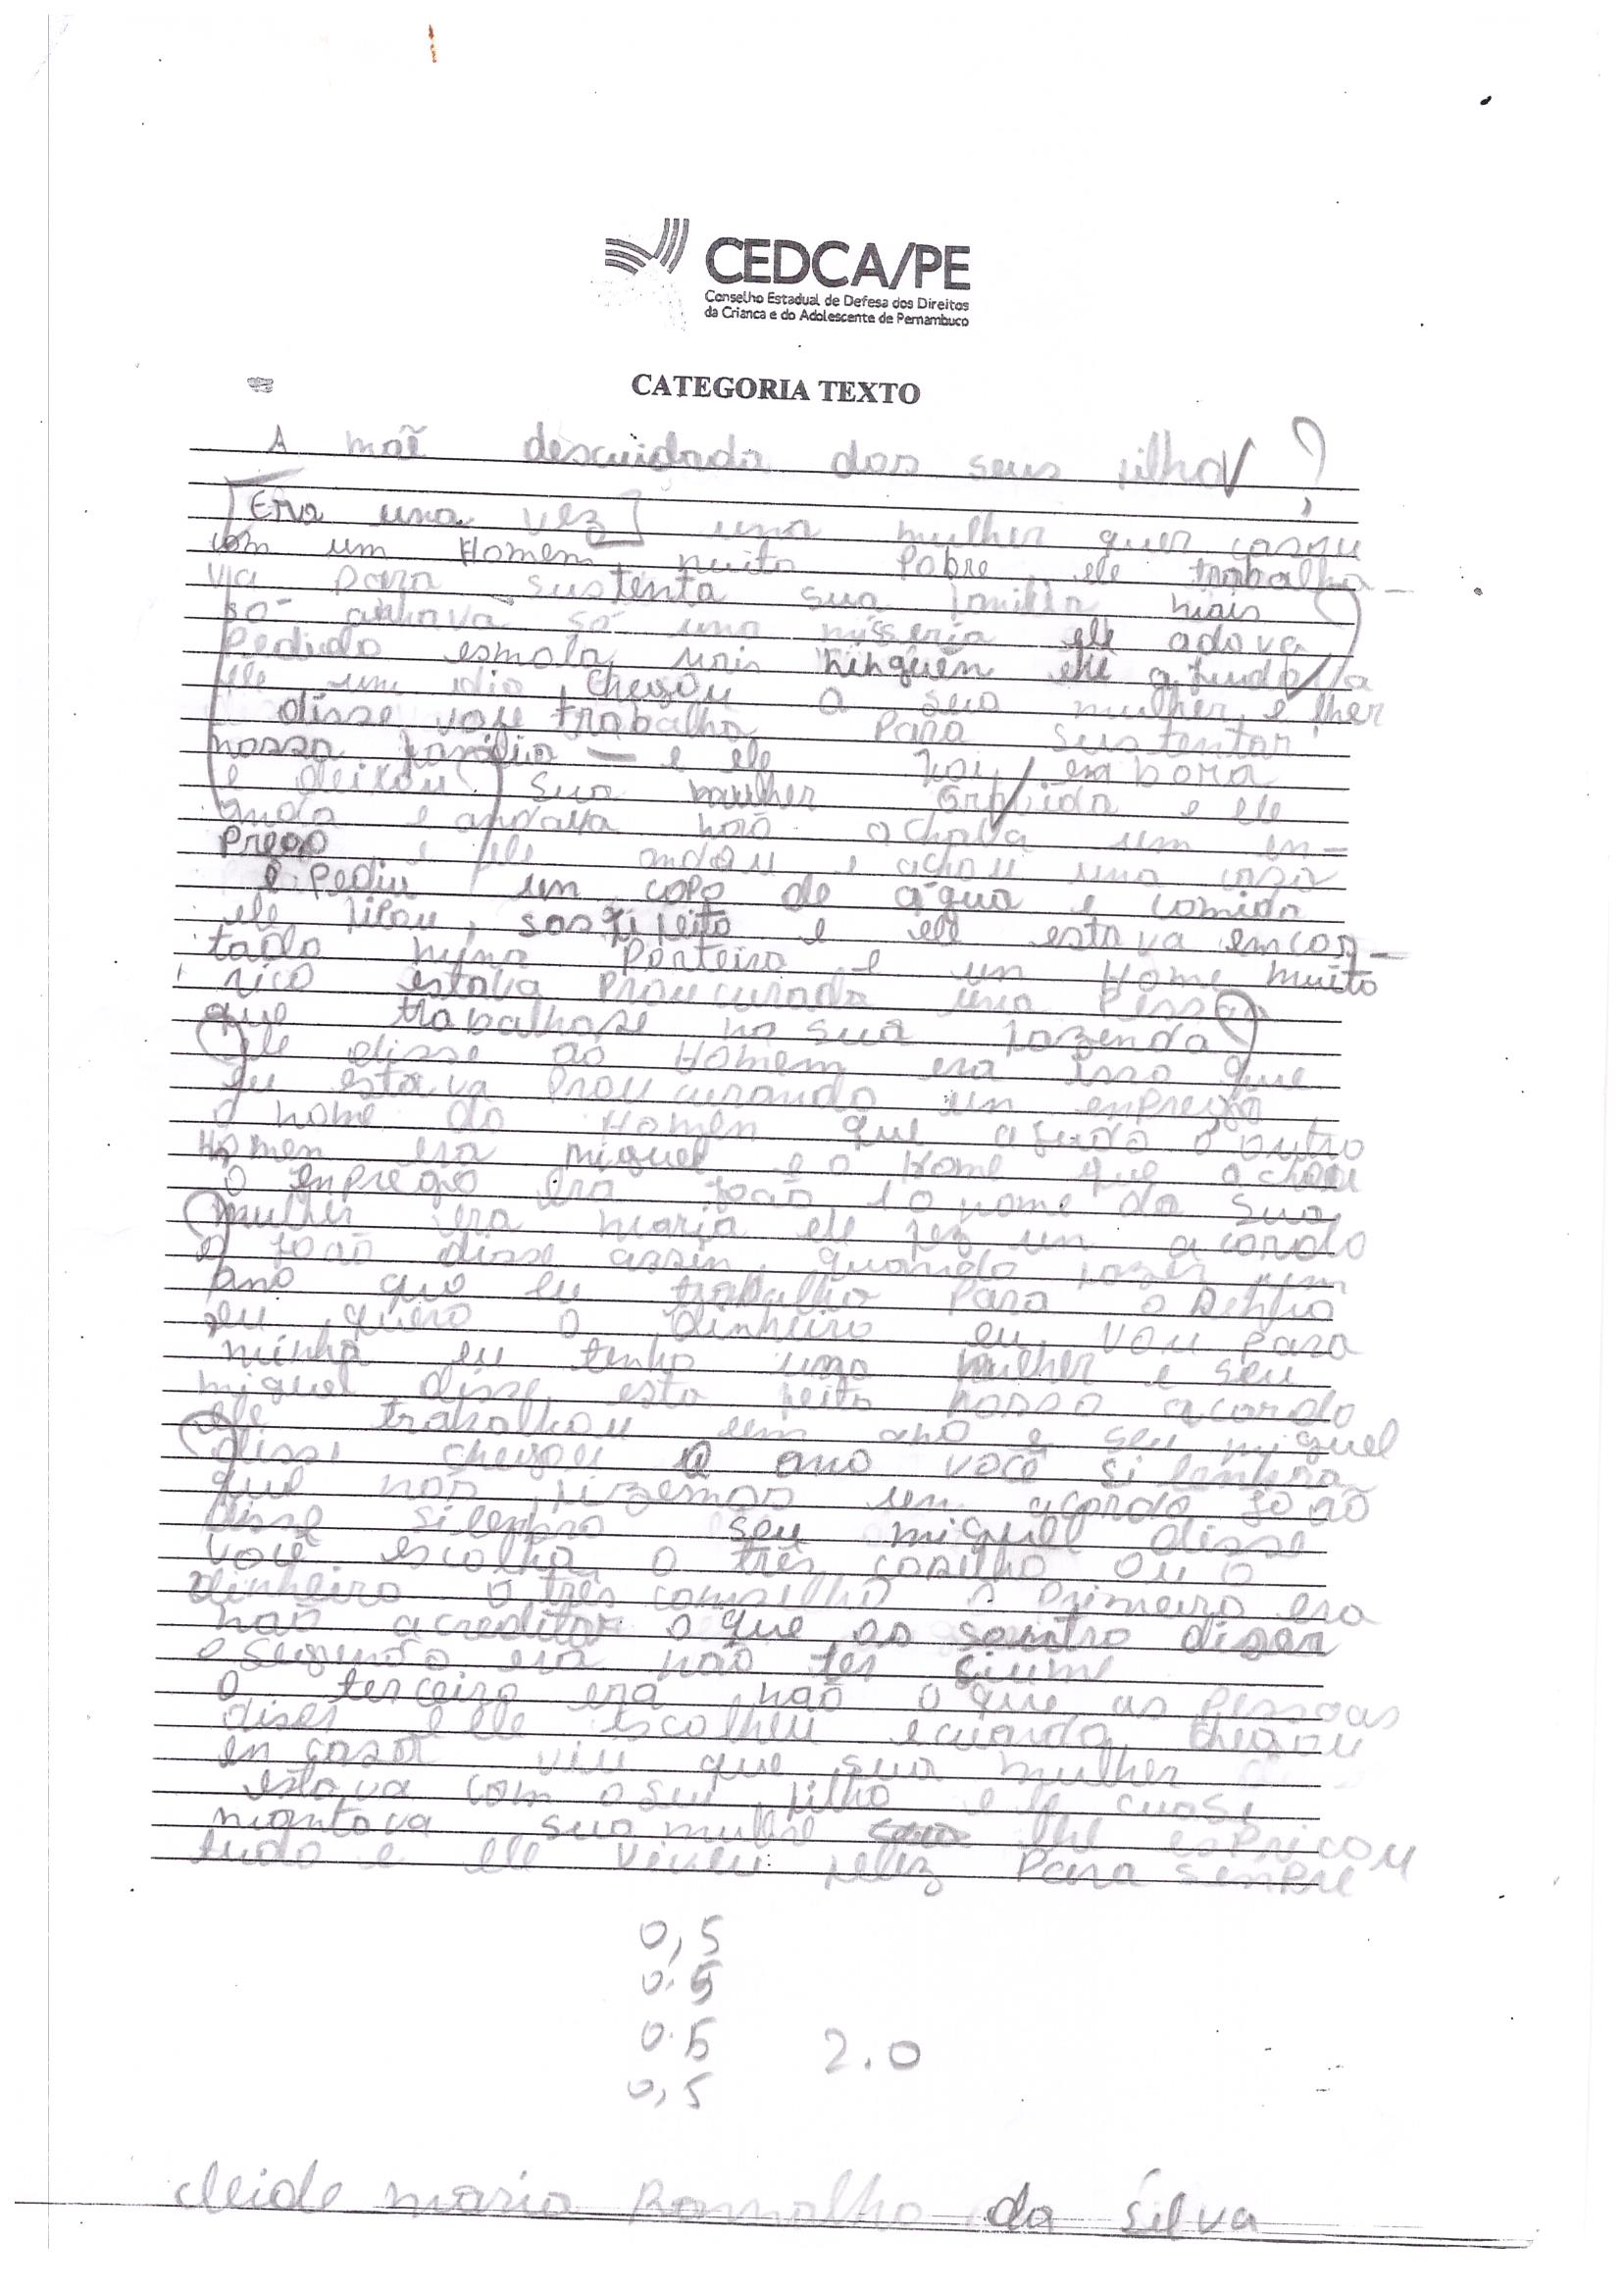 CEDCA/PE
Conselho Estadual de Defesa dos Direitos
da Crianca e do Adolescente de Pernambuco
CATEGORIA TEXTO
A mãe descuidada dos seus filho ?
Era uma vez uma mulher quer casou
com um Homem muito Pobre ele trabalha-
va para sustenta sua familia mais
só achava só uma misseria ele adava
Pedido esmola mais ninguém ele ajudava
ele um dia chegou a sua mulher e lher
disse vou trabalha Para sustentar
nossa família e ele foi embora
e deixou sua mulher e ele
anda e andava não achava um en-
prego e ele andou e achou uma casa
e Pediu um copo de água e comida
ele ficou e ele estava encos-
tado numa Porteira e un Home muito
rico estava Proucurada uma Pessoa
que trabalhase na sua fazenda
ele disse ao Homem era isso que
eu estava Proucurando um enprego
o nome do Homen que ajuda o outro
Homen era miguel e o Home que achou
o enprego era João e o nome da sua
mulher era maria ele fez un acordo
e João disse assin quando fazer um
ano que eu trabalho Para o
eu quero o dinheiro eu vou Para
minha eu tenho uma mulher e seu
miguel disse esta feito nosso acordo
ele trabalhou um ano e seu miguel
disse chegou o ano você si lenbra
que nós fizemos um acordo João
disse silenbro seu miguel disse
você escolha o três cosilho ou o
dinheiro o três comsilho o Primeiro era
não acreditar o que os dizen
o segundo era não ter siume
o terceiro era não o que as Pessoas
diser e ele escolheu e cuando chegou
en casa viu que sua mulher
estava com o seu filho e ele cuase
mantava sua mulhe lhe espricou
tudo e ele viveu feliz Para senpre
0,5
0.5
0.5 2.0
0,5
cleide maria Ramalho da Silva